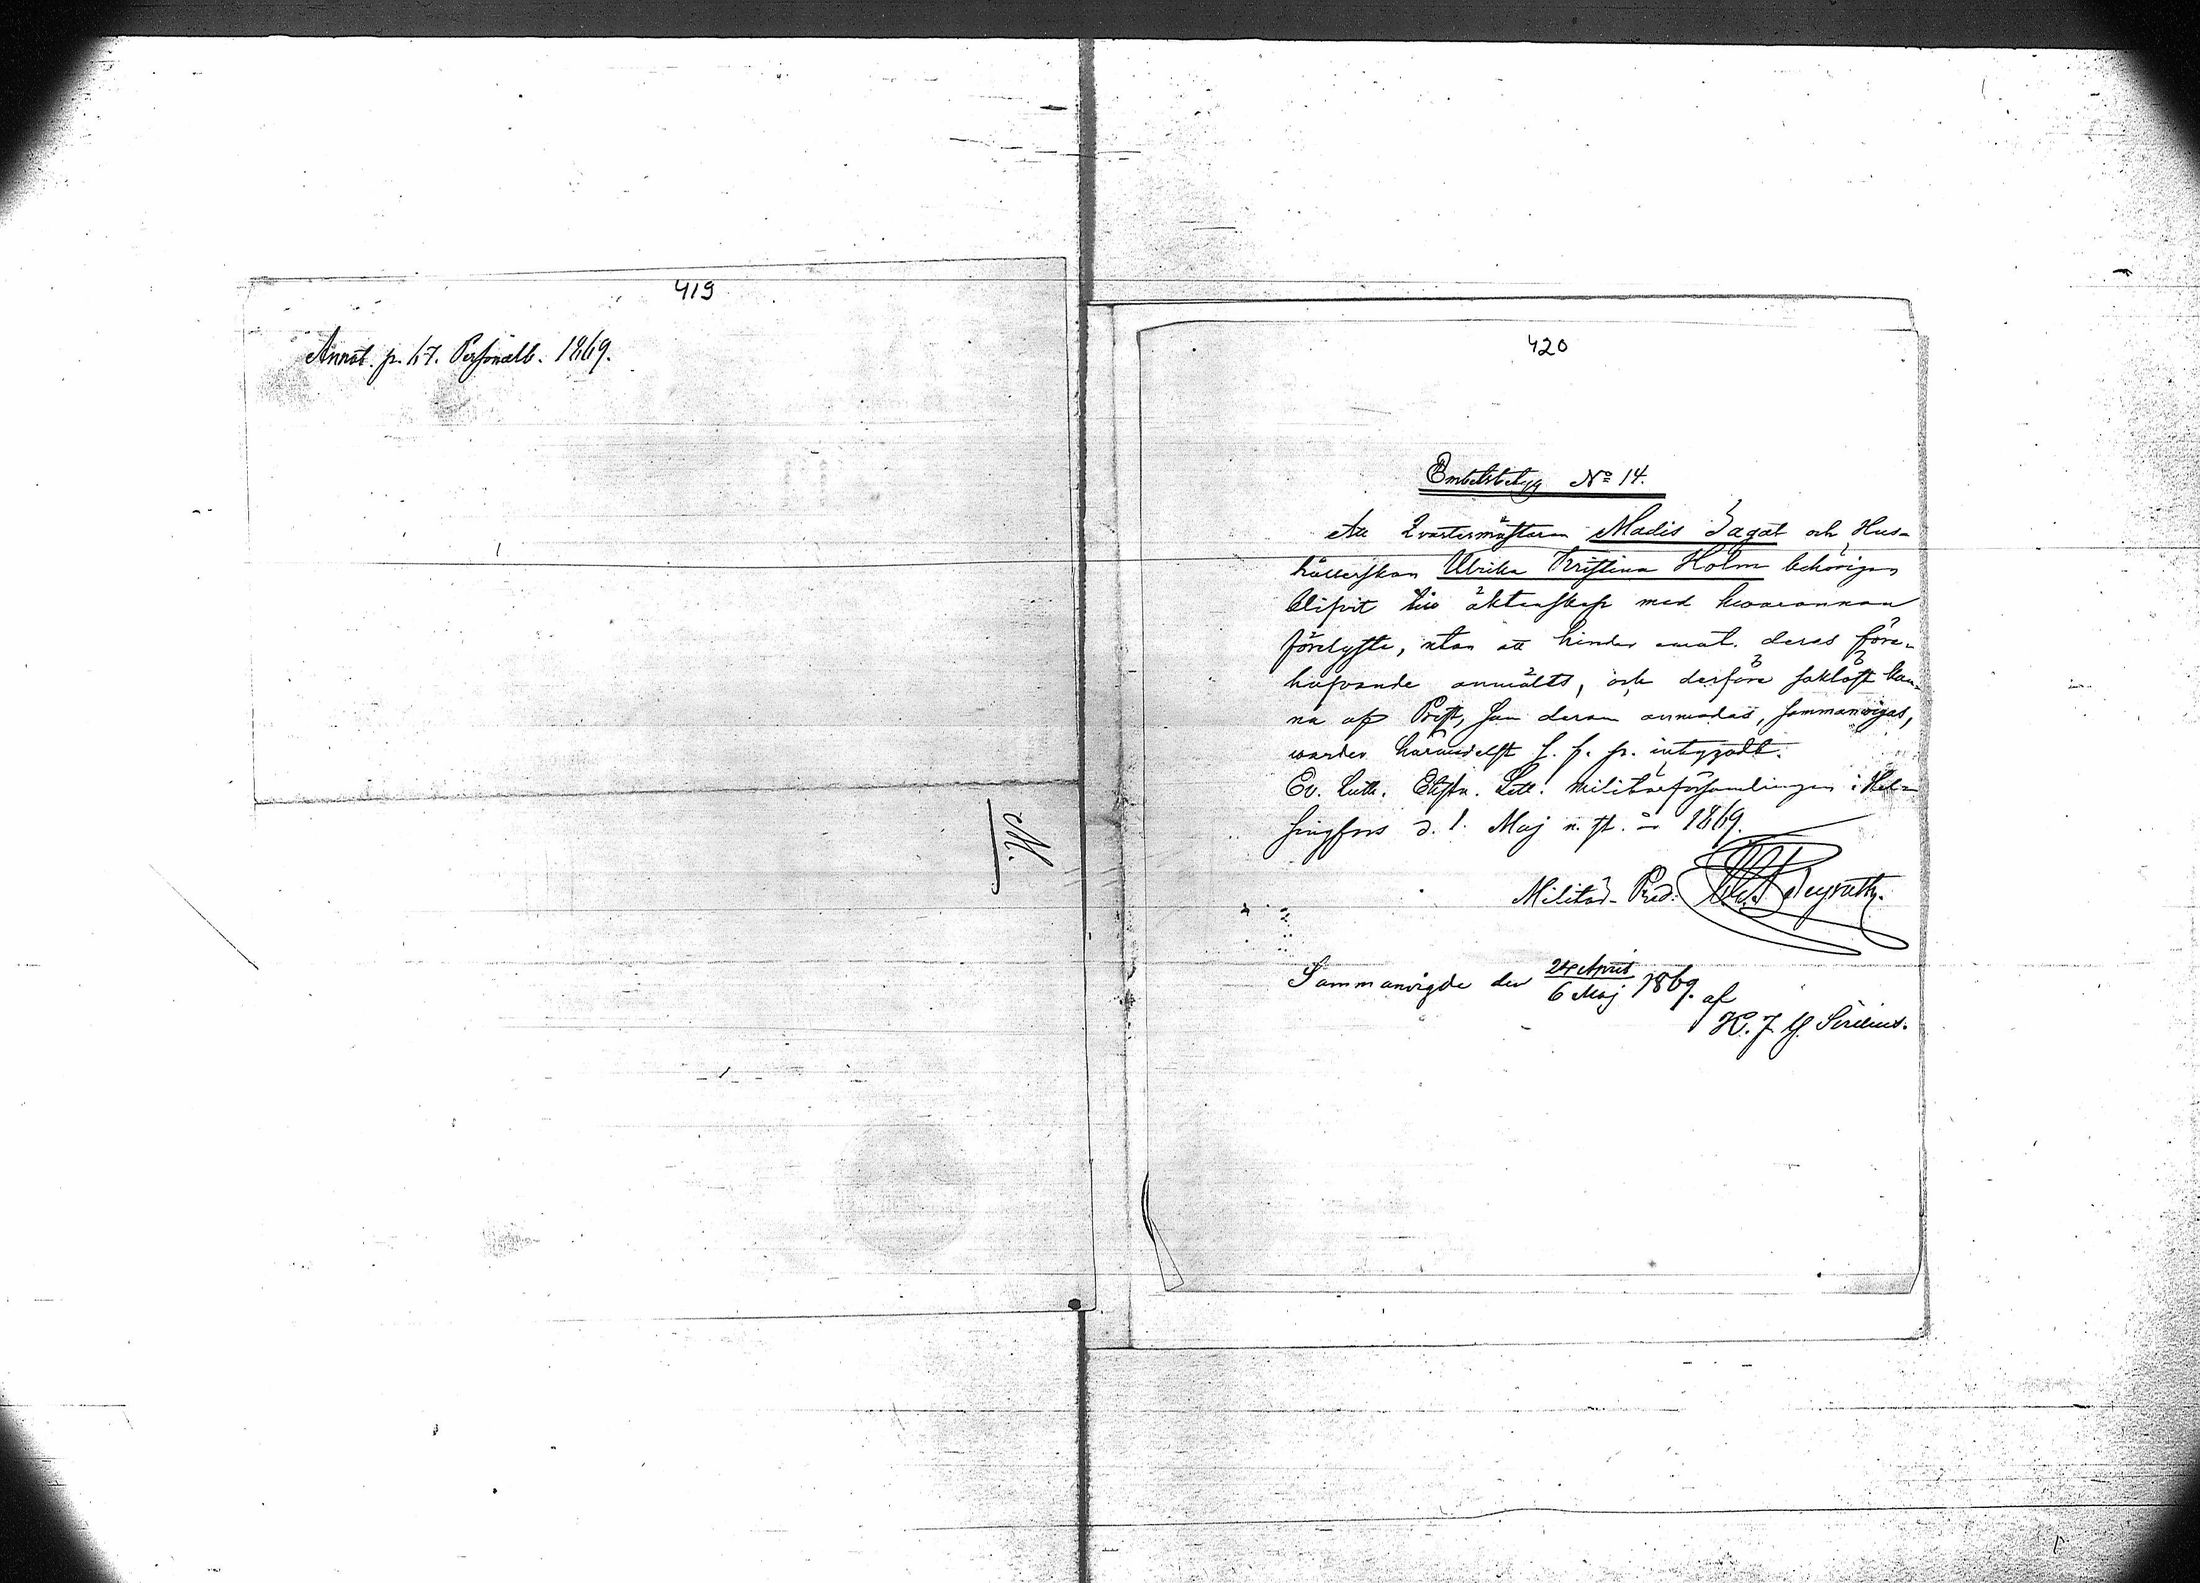 419
Annot. p. 67. Personalb. 1869.
M.
420
Embetsbetyg No 14.
Att Qvartermästaren Madis Jagat och Hus-
hållerskan Ulrika Kristina Holm behörigen
blifvit till äktenskap med hvarannan
förelyste, utan att hinder emot deras före-
hafvande anmälts, och derföre saklöst kun-
na af Prest, som derom anmodas, sammanvigas,
warder härmedelst s. f. p. intygadt.
Ev. Luth. Ehstn. Lett. Militärförsamlingen i Hel-
singfors d. 1. Maj n. st. år 1869.
Militär-Pred.
Sammanvigde den 24 April / 6 Maj 1869. af
K. J. G. Sirelius.